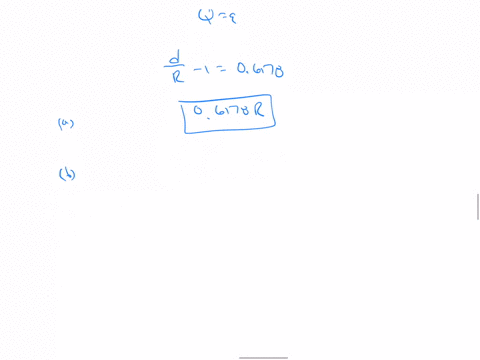 Q = q
d/R - 1 = 0.6178
0.6178 R
(a)
(b)